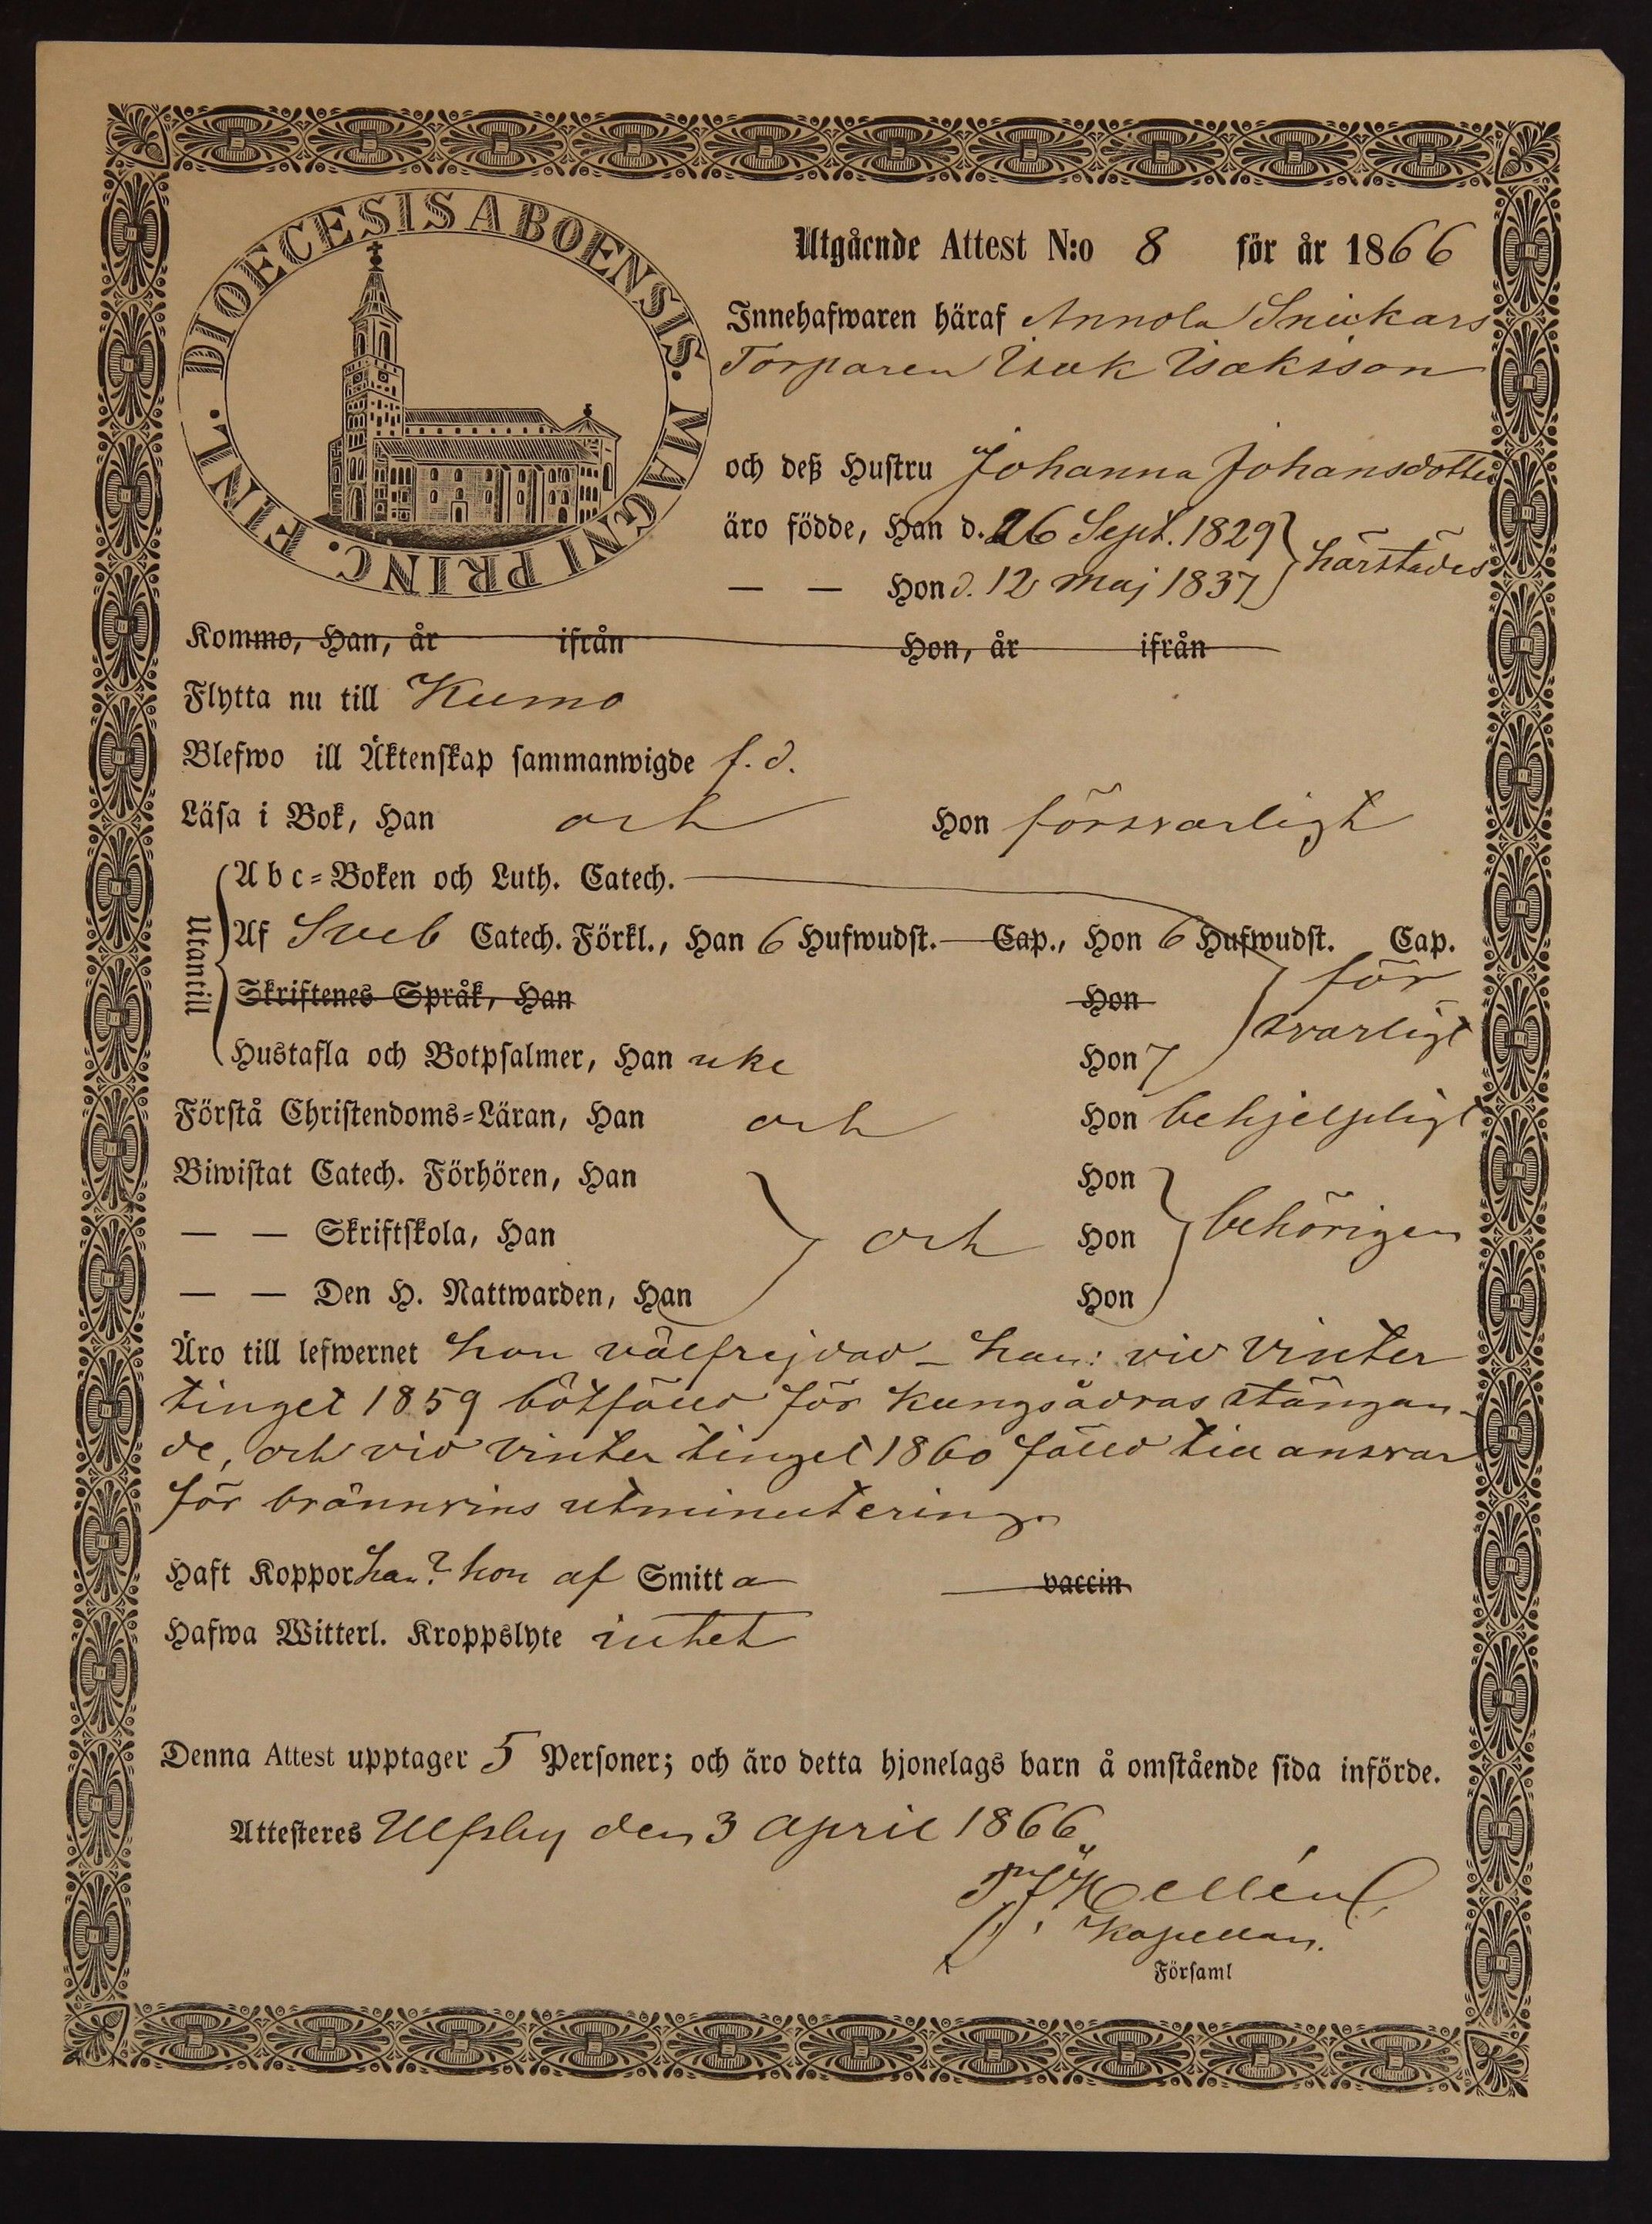 DIOECESIS ABOENSIS. MAGNI PRINC. FINL.
Utgående Attest N:o 8 för år 1866
Innehafwaren häraf Annola Snickars
Torparen Isak Isaksson
och deß Hustru Johanna Johansdotter
äro födde, Han d. 26 Sept. 1829
— — Hon d. 12 Maj 1837 } härstädes
Kommo, Han, år ifrån Hon, år ifrån
Flytta nu till Kumo
Blefwo ill Äktenskap sammanwigde f. d.
Läsa i Bok, Han och Hon försvarligt
Utantill
Abc-Boken och Luth. Catech.
Af Sveb Catech. Förkl., Han 6 Hufwudst. Cap., Hon 6 Hufwudst. Cap.
Skriftenes Språk, Han Hon
för
svarligt
Hustafla och Botpsalmer, Han icke Hon 7
Förstå Christendoms-Läran, Han och Hon behjelpligt
Biwistat Catech. Förhören, Han Hon
— — Skriftskola, Han och Hon behörigen
— — Den H. Nattwarden, Han Hon
Äro till lefwernet hon välfrejdad – han: vid vinter
tinget 1859 bötfälld för Kungsådras stängan-
de, och vid vinter tinget 1860 fälld till ansvar
för brännvins utminutering.
Haft Koppor han? hon af Smitta vaccin
Hafwa Witterl. Kroppslyte intet
Denna Attest upptager 5 Personer; och äro detta hjonelags barn å omstående sida införde.
Attesteres Ulfsby den 3 April 1866.
Hellén
Kapellan.
Församl